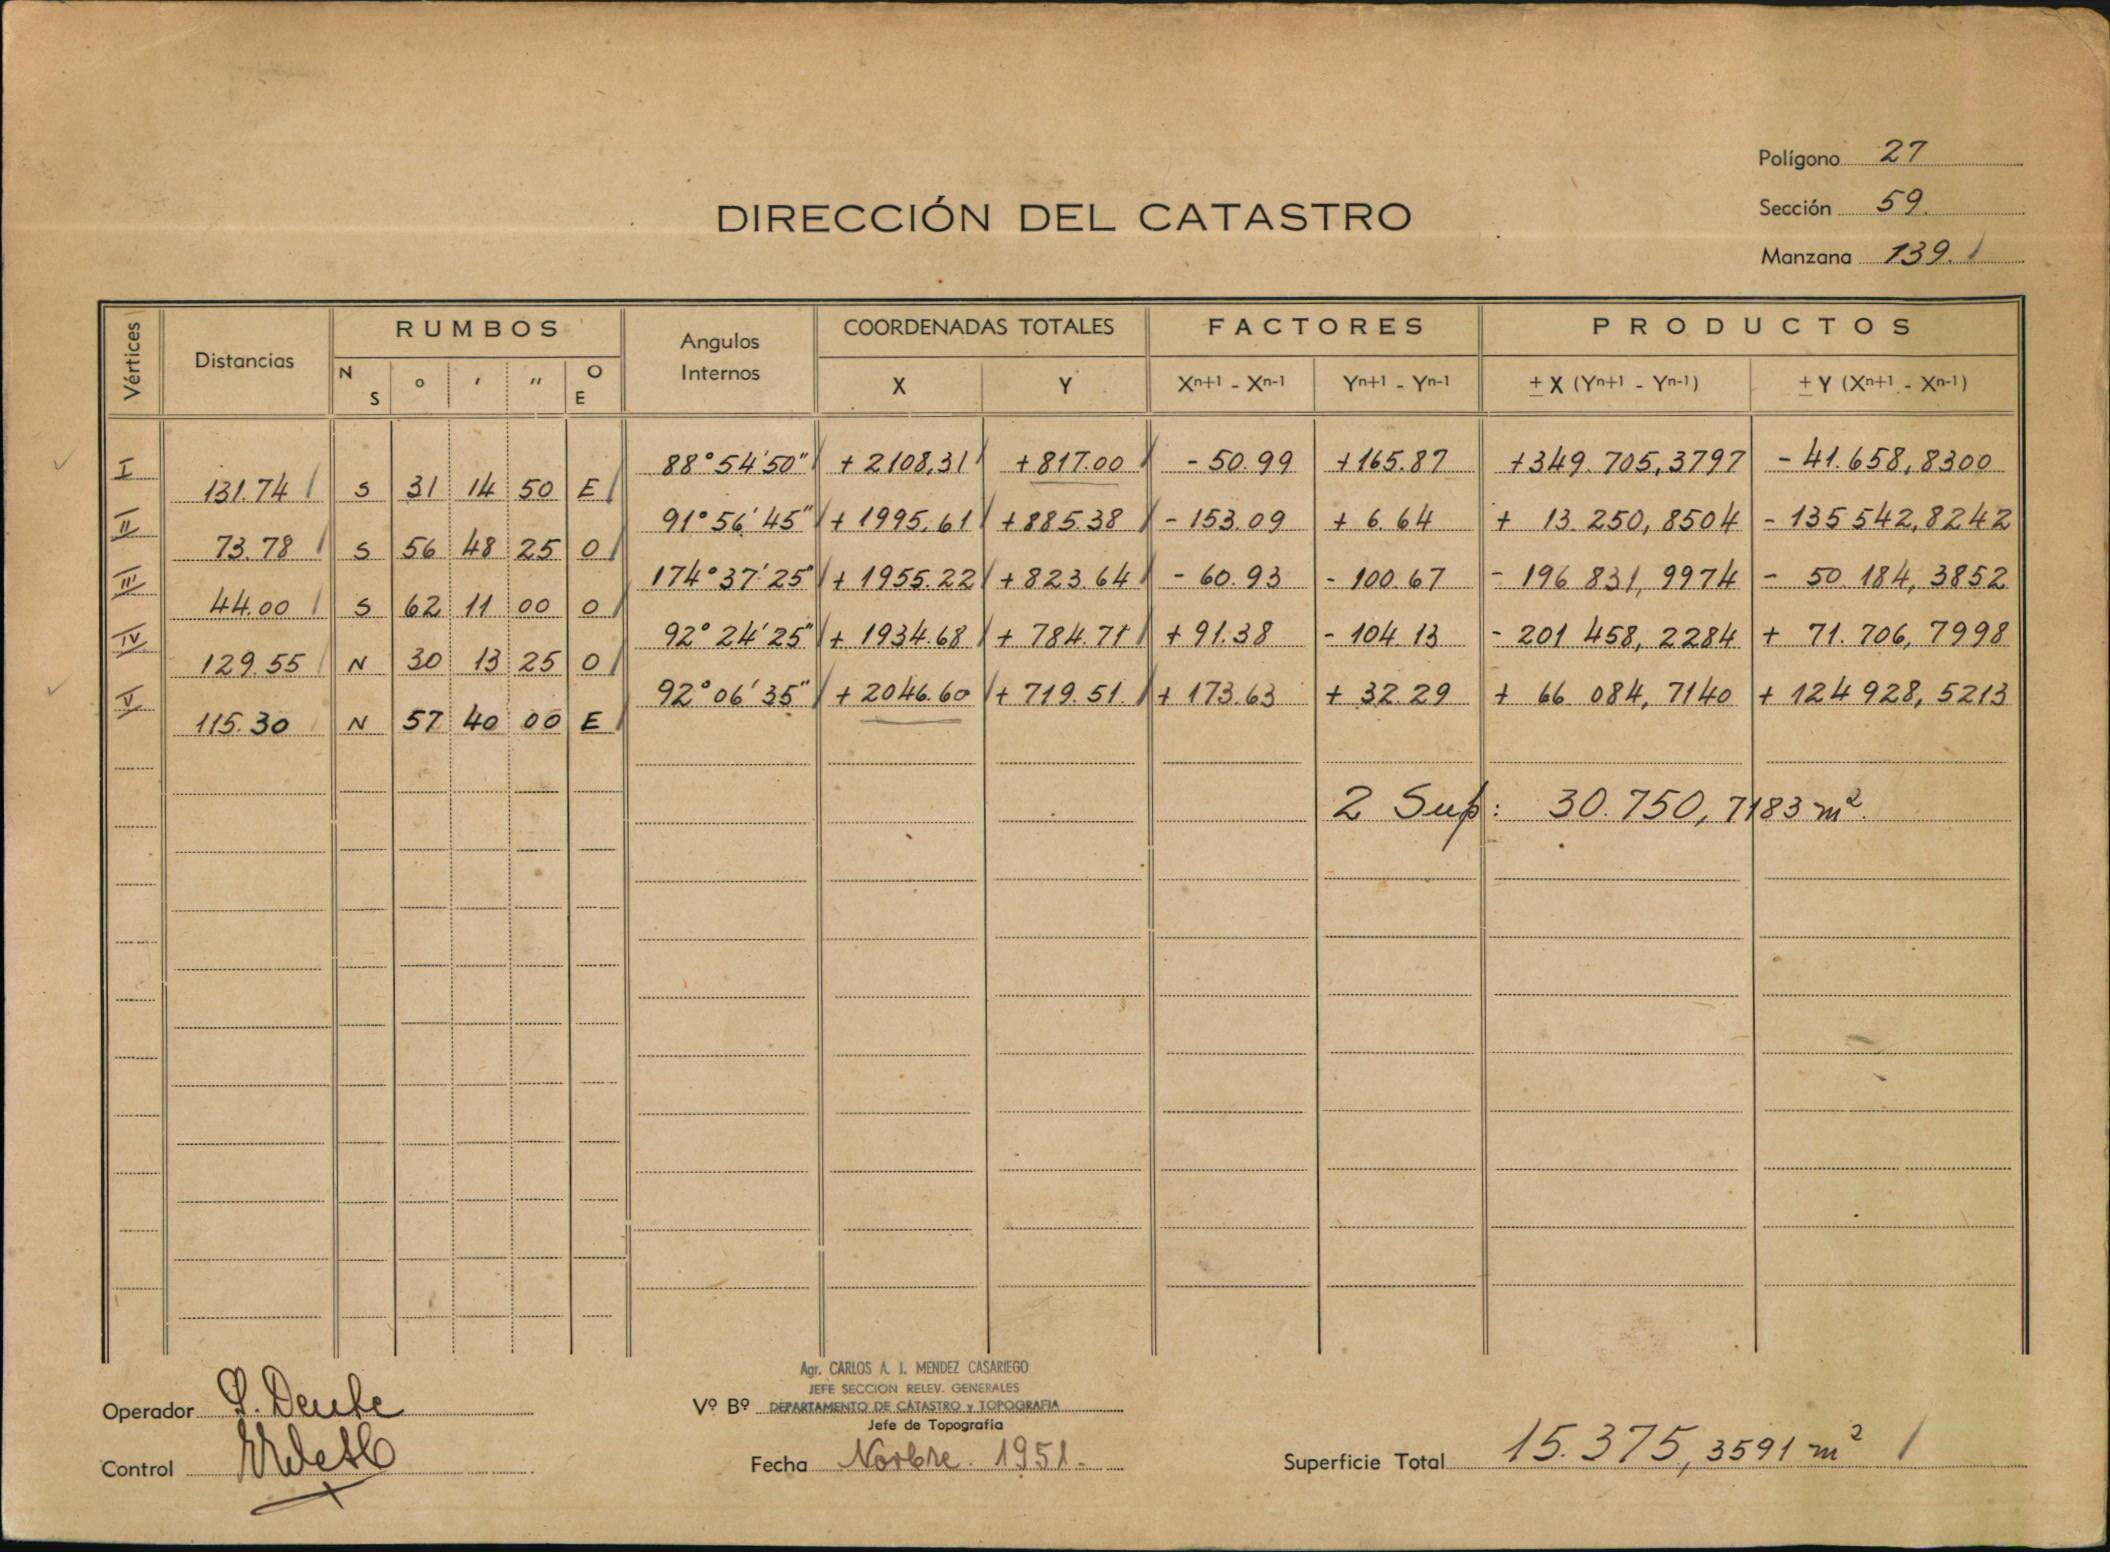 Polígono 27
Sección 59.
Manzana 139.
DIRECCIÓN DEL CATASTRO
Vértices Distancias RUMBOS Angulos Internos COORDENADAS TOTALES FACTORES PRODUCTOS
N S ° ' " O E X Y Xn+1 - Xn-1 Yn+1 - Yn-1 ± X (Yn+1 - Yn-1) ± Y (Xn+1 - Xn-1)
I 88°54'50" + 2108,31 + 817.00 - 50.99 +165.87 +349.705,3797 - 41.658,8300
131.74 S 31 14 50 E
II 91°56'45" + 1995.61 + 885.38 - 153.09 + 6.64 + 13.250,8504 - 135 542,8242
73.78 S 56 48 25 O
III 174°37'25" + 1955.22 + 823.64 - 60.93 - 100.67 - 196 831,9974 - 50.184,3852
44.00 S 62 11 00 O
IV 92°24'25" + 1934.68 + 784.71 + 91.38 - 104.13 - 201 458,2284 + 71.706,7998
129.55 N 30 13 25 O
V 92°06'35" + 2046.60 + 719.51. + 173.63 + 32.29 + 66 084,7140 + 124 928,5213
115.30 N 57 40 00 E
2 Sup: 30.750,7183 m²
Agr. CARLOS A. J. MENDEZ CASARIEGO
JEFE SECCION RELEV. GENERALES
Operador Vº Bº DEPARTAMENTO DE CATASTRO y TOPOGRAFIA
Jefe de Topografía
Control Fecha Novbre. 1951. Superficie Total 15.375,3591 m²